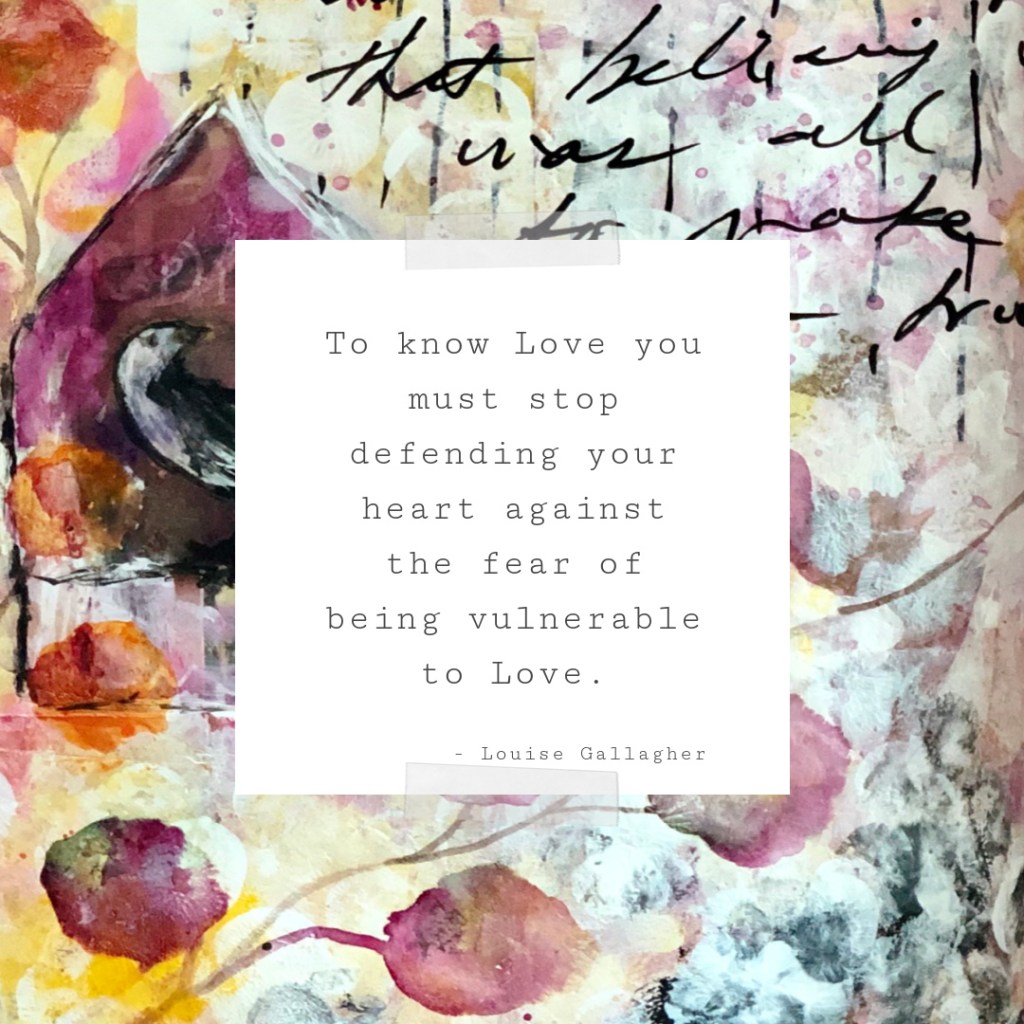 that believing
was all
to make
To know Love you
must stop
defending your
heart against
the fear of
being vulnerable
to Love.
- Louise Gallagher